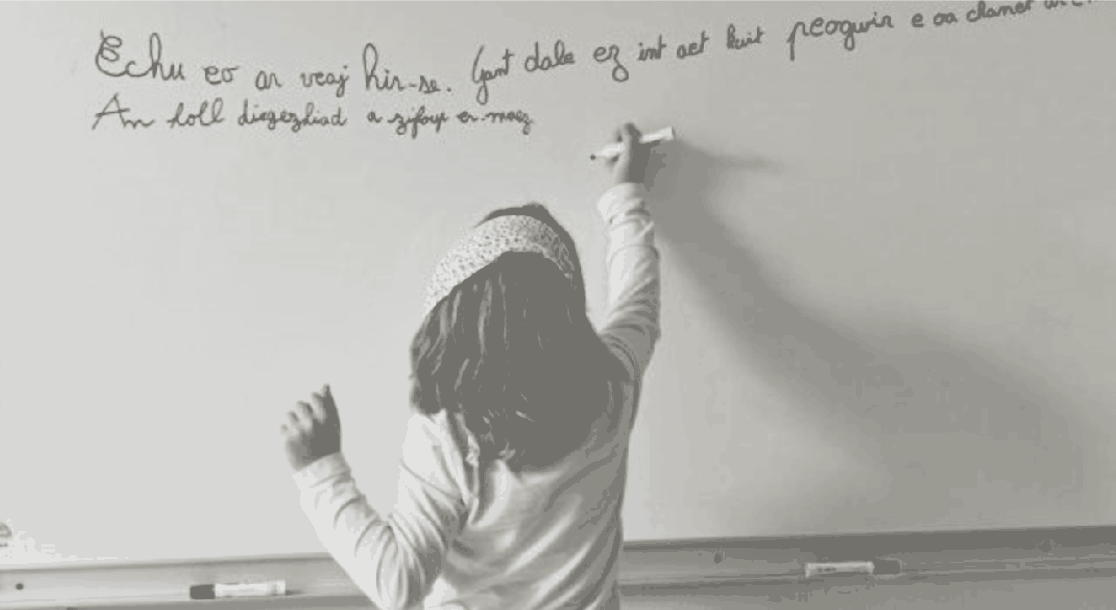 Echu eo ar veaj hir-se. Gant dale ez int aet kuit peogwir e oa chomet
An holl diegezhiad a zifoup er-maez